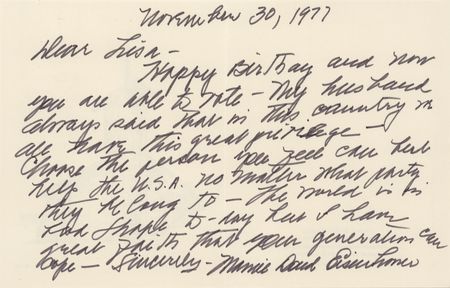 November 30, 1977
Dear Lisa -
Happy Birthday and now
you are able to vote - My husband
always said that in this country we
all have this great privilege -
Choose the person you feel can best
help the U.S.A. no matter what party
they belong to - The world is in
bad shape to-day but I have
great faith that your generation can
cope - Sincerely - Mamie Doud Eisenhower